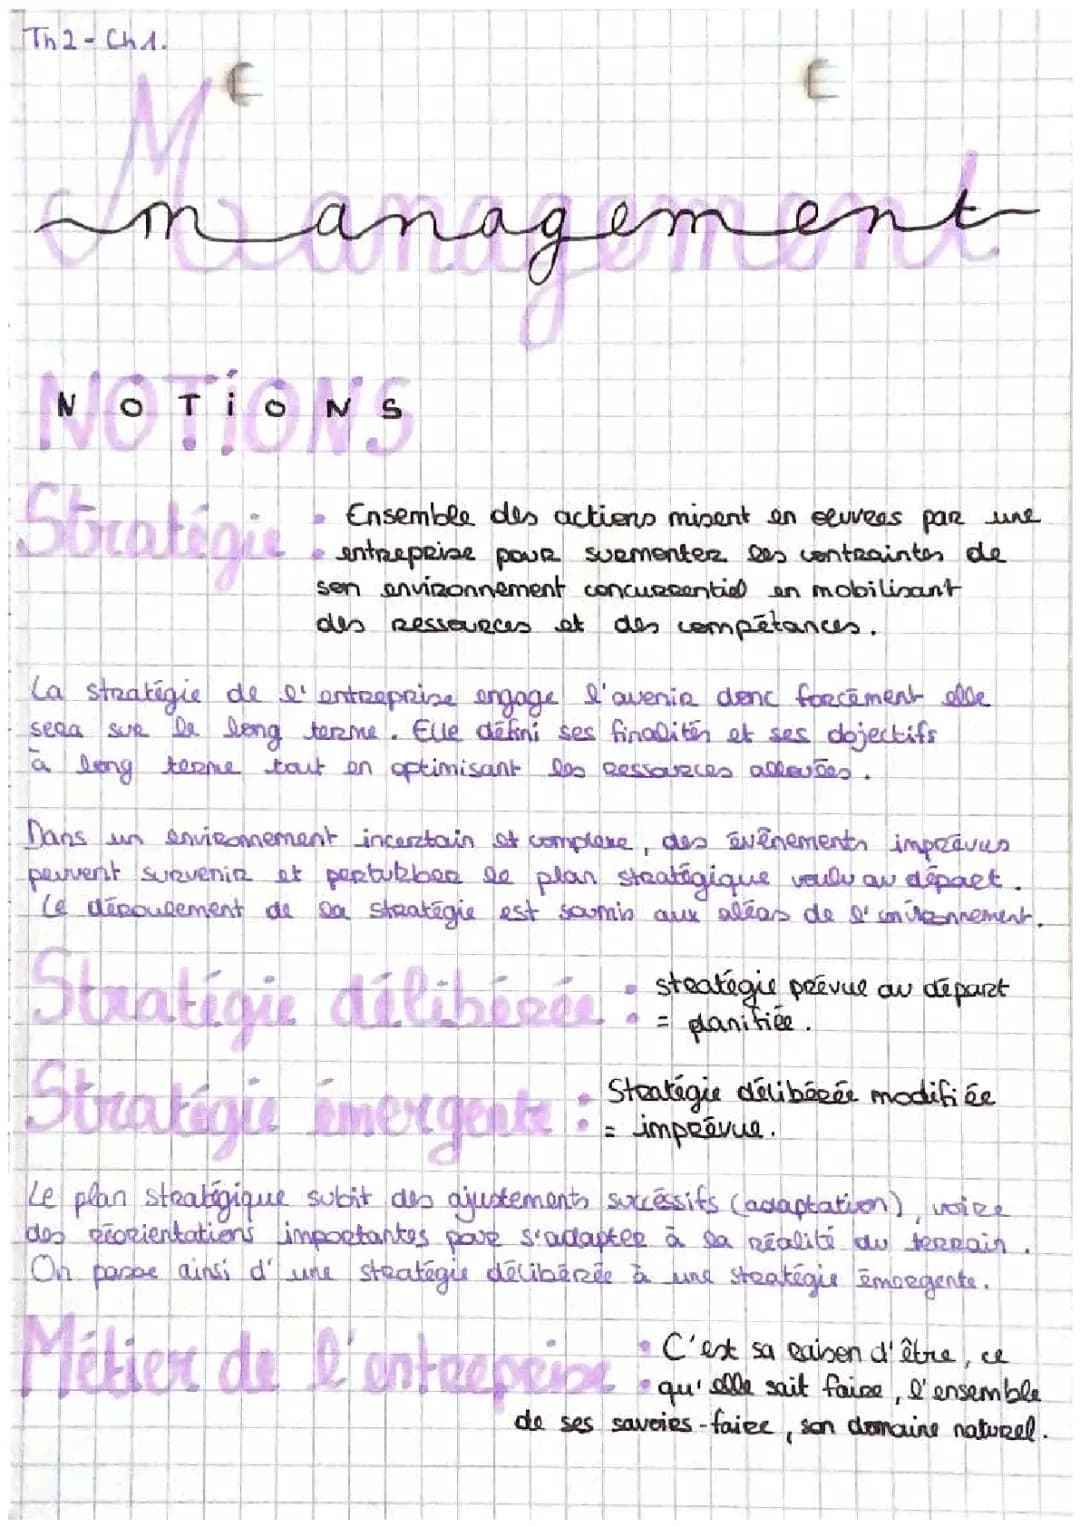 Th2 - Ch1.
Management
NOTiONS
Stratégie : Ensemble des actions misent en œuvres par une
entreprise pour surmonter les contraintes de
son environnement concurrentiel en mobilisant
des ressources et des compétances.
La stratégie de l'entreprise engage l'avenir donc forcément elle
sera sur le long terme. Elle défini ses finalités et ses dojectifs
à long terme tout en optimisant les ressources allouées.
Dans un environnement incertain et complexe, des évènements imprévus
peuvent survenir et pertubber le plan stratégique voulu au départ.
Le déroulement de la stratégie est soumis aux aléas de l'environnement.
Stratégie délibérée : stratégie prévue au départ
= planifiée.
Stratégie émergente : Stratégie délibérée modifiée
= imprévue.
Le plan stratégique subit des ajustements succéssifs (adaptation), voire
des réorientations importantes pour s'adapter à la réalité du terrain.
On passe ainsi d'une stratégie délibérée à une stratégie émergente.
Métier de l'entreprise : C'est sa raison d'être, ce
qu'elle sait faire, l'ensemble
de ses savoirs-faire, son domaine naturel.